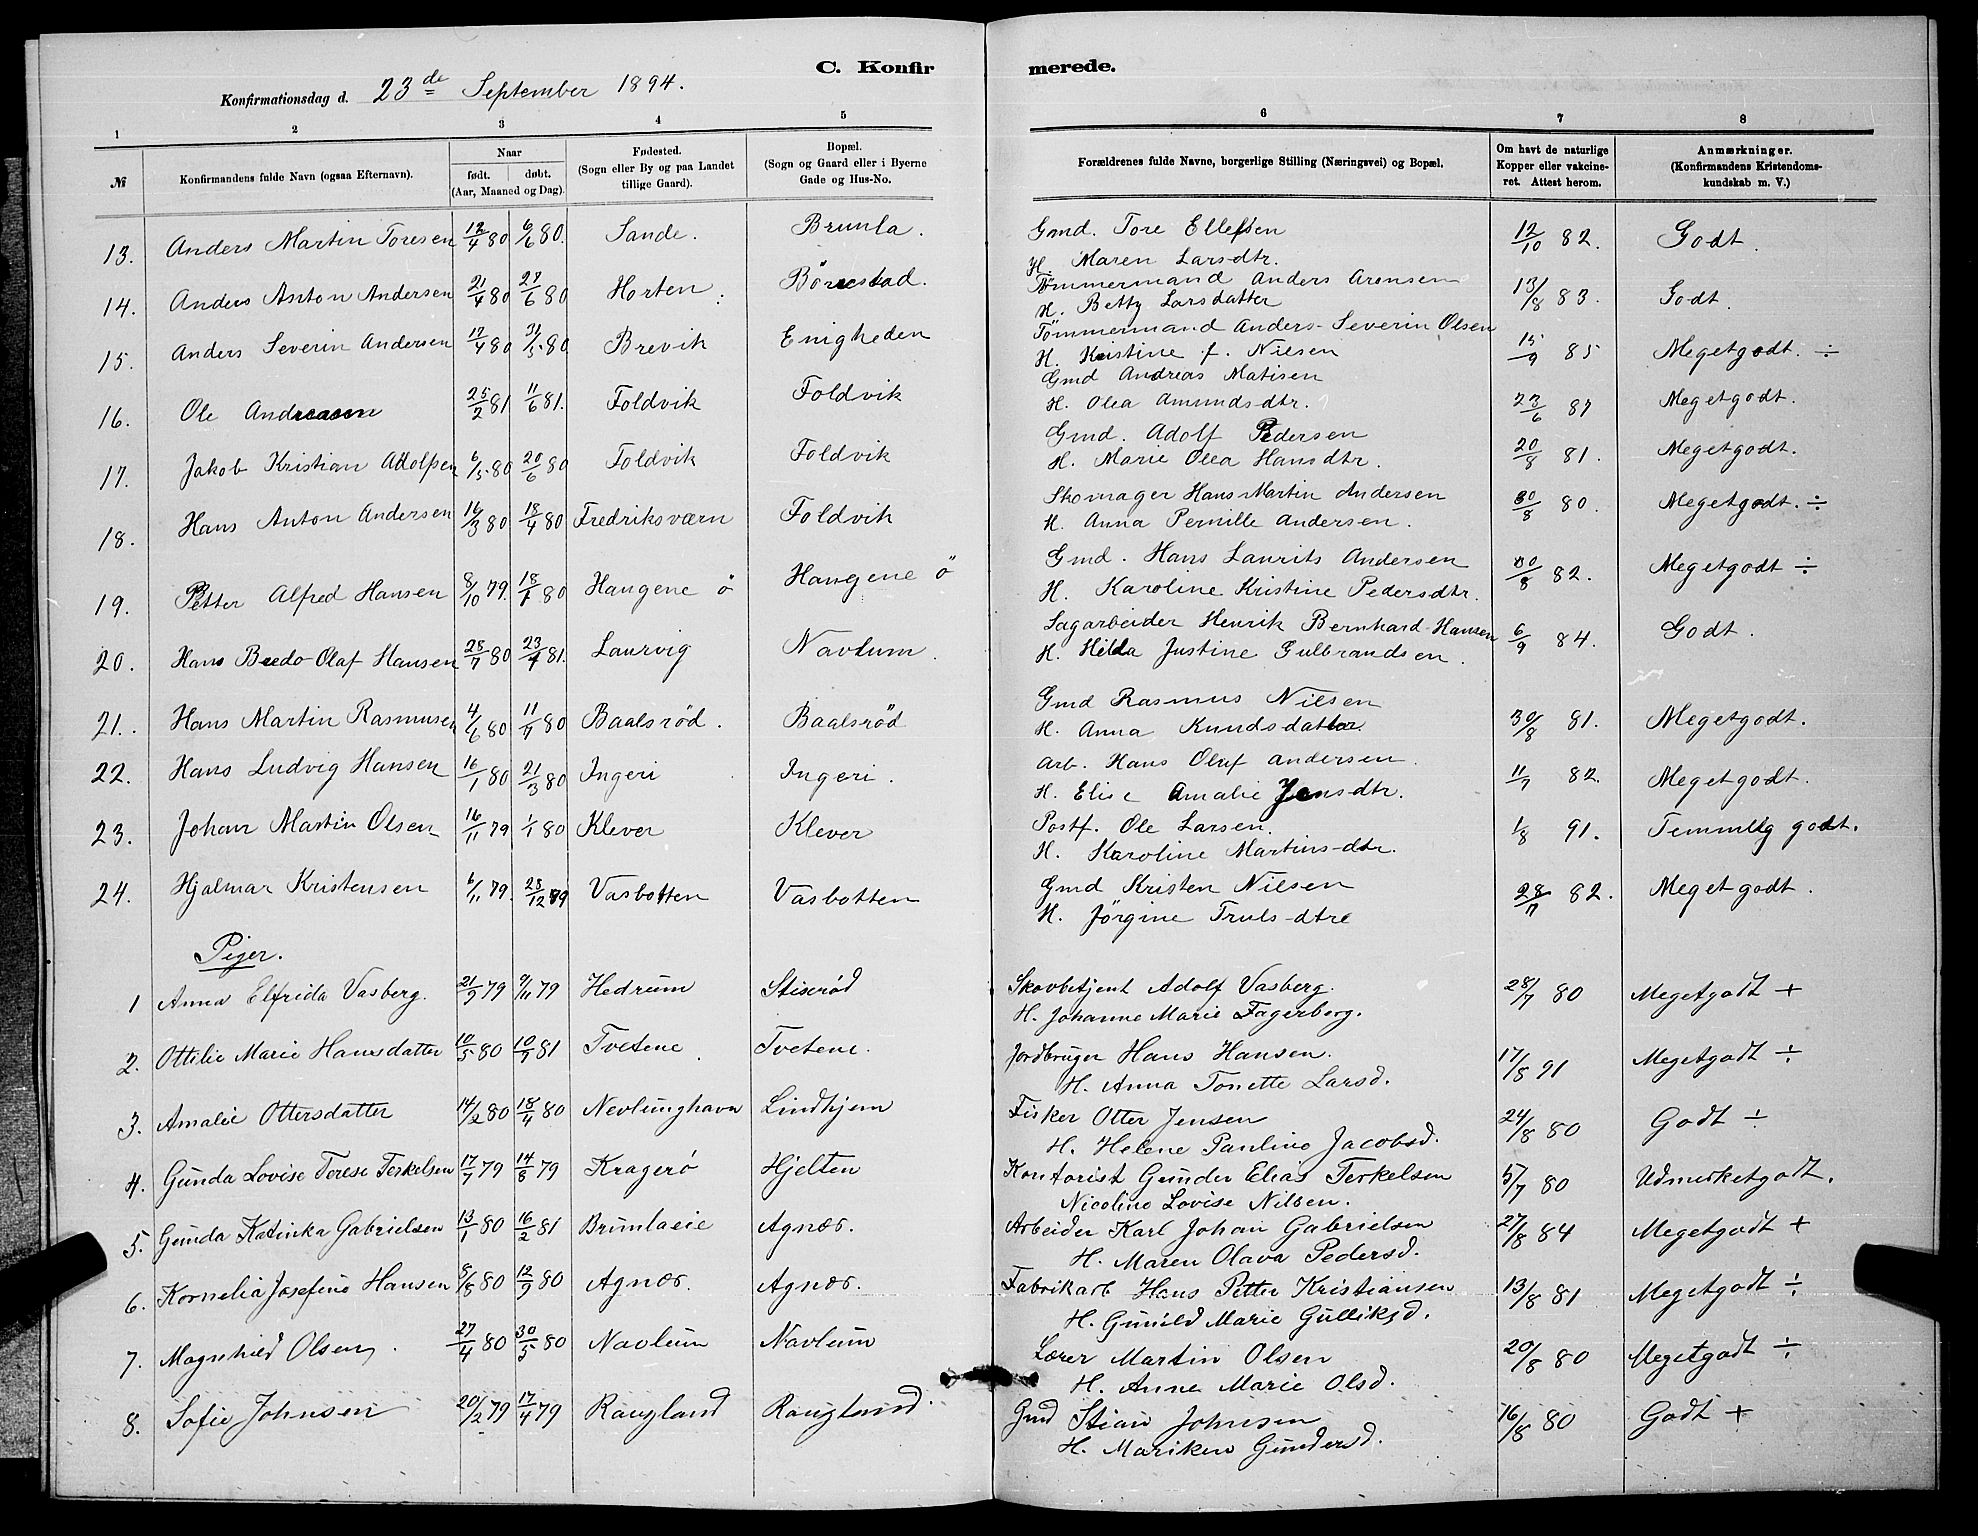 C. Konfirmerede.
Konfirmationsdag d. 23de September 1894.
1 2 3 4 5 6 7 8
№ Konfirmandens fulde Navn (ogsaa Efternavn). Naar født. døbt. (Aar, Maaned og Dag). Fødested. (Sogn eller By og paa Landet tillige Gaard). Bopæl. (Sogn og Gaard eller i Byerne Gade og Hus-No. Forældrenes fulde Navne, borgerlige Stilling (Næringsvei) og Bopæl. Om havt de naturlige Kopper eller vakcineret. Attest herom. Anmærkninger. (Konfirmandens Kristendomskundskab m. V.)
13. Anders Martin Toresen 12/4 80 6/6 80. Sande. Brunla. Gmd. Tore Ellefsen 12/10 82. Godt.
H. Maren Larsdtr.
14. Anders Anton Andersen 21/4 80 27/6 80 Horten. Bönestad. Tömmermand Anders Aronsen 13/8 83. Godt.
H. Betty Larsdatter
15. Anders Severin Andersen 12/4 80 31/5 80 Brevik Enigheden Tömmermand Anders Severin Olsen 15/9 85 Megetgodt. ÷
H. Kristine f. Nilsen
16. Ole Andreassen 25/2 81 11/6 81. Foldvik Foldvik Gmd Andreas Matisen 23/6 87 Megetgodt.
H. Olea Amundsdtr.
17. Jakob Kristian Adolfsen 6/5 80 20/6 80 Foldvik Foldvik Gmd. Adolf Pedersen 20/8 81. Megetgodt.
H. Marie Olea Hansdtr.
18. Hans Anton Andersen 16/3 80 18/4 80 Fredriksværn Foldvik Skomager Hans Martin Andersen 30/8 80. Megetgodt. ÷
H. Anna Pernille Andersen.
19. Petter Alfred Hansen 8/10 79. 18/1 80 Hangene ö Hangene ö Gmd. Hans Laurits Andersen 30/8 82. Megetgodt ÷
H. Karoline Kristine Pedersdtr.
20. Hans Bredo Olaf Hansen 28/7 80 23/4 81. Laurvig Navlum. Sagarbeider Henrik Bernhard Hansen 6/9 84. Godt.
H. Hilda Justine Gulbrandsen.
21. Hans Martin Rasmusen 4/6 80 11/7 80 Baalsrød. Baalsrød Gmd Rasmus Nilsen 30/8 81. Megetgodt.
H. Anna Knudsdatter
22. Hans Ludvig Hansen 16/1 80 21/3 80 Ingeri Ingeri. Arb. Hans Oluf Andersen. 11/7 82. Megetgodt.
H. Elise Amalie Jensdtr.
23. Johan Martin Olsen 16/11 79 1/1 80 Klever Klever Postf. Ole Larsen. 1/8 91. Temmelig godt.
H. Karoline Martinsdtr.
24. Hjalmar Kristensen 6/11 79. 28/12 79 Vasbotten Vasbotten Gmd Kristen Nilsen 28/7 82. Megetgodt.
H. Jörgine Trulsdtre
Piger.
1 Anna Elfrida Vasberg. 21/9 79 9/11 79 Hedrum Stiserød Skovbetjent Adolf Vasberg. 28/7 80 Megetgodt +
H. Johanne Marie Fagerberg.
2. Ottilie Marie Hansdatter 10/5 80 10/7 81 Tvetene Tvetene. Jordbruger Hans Hansen. 17/8 91 Megetgodt ÷
H. Anna Tonette Larsd.
3. Amalie Ottersdatter 14/2 80 18/4 80 Nevlunghavn Lindhjem Fisker Otter Jensen 24/8 80 Godt ÷
H. Helene Pauline Jacobsd.
4. Gunda Lovise Terese Terkelsen 17/7 79 14/8 79 Kragerø Hjelten Kontorist Gunder Elias Terkelsen 5/7 80 Udmerketgodt.
Nicoline Lovise Nilsen.
5. Gunda Katinka Gabrielsen 13/1 80 16/2 81 Brunlaeie Agnæs. Arbeider Karl Johan Gabrielsen 27/8 84 Megetgodt +
H. Maren Olava Pedersd.
6. Kornelia Josefine Hansen 8/8 80 12/9 80 Agnæs. Agnæs. Fabrikarb Hans Petter Kristiansen 13/8 81 Megetgodt ÷
H. Gunild Marie Gulliksd.
7. Magnhild Olsen. 27/4 80 30/5 80 Navlum Navlum Lærer Martin Olsen 20/8 80 Megetgodt ÷
H. Anne Marie Olsd.
8. Sofie Johnsen 20/2 79 17/4 79 Raugland Raugland. Gmd Stian Johnsen 16/8 80 Godt +
H. Mariken Gundersd.